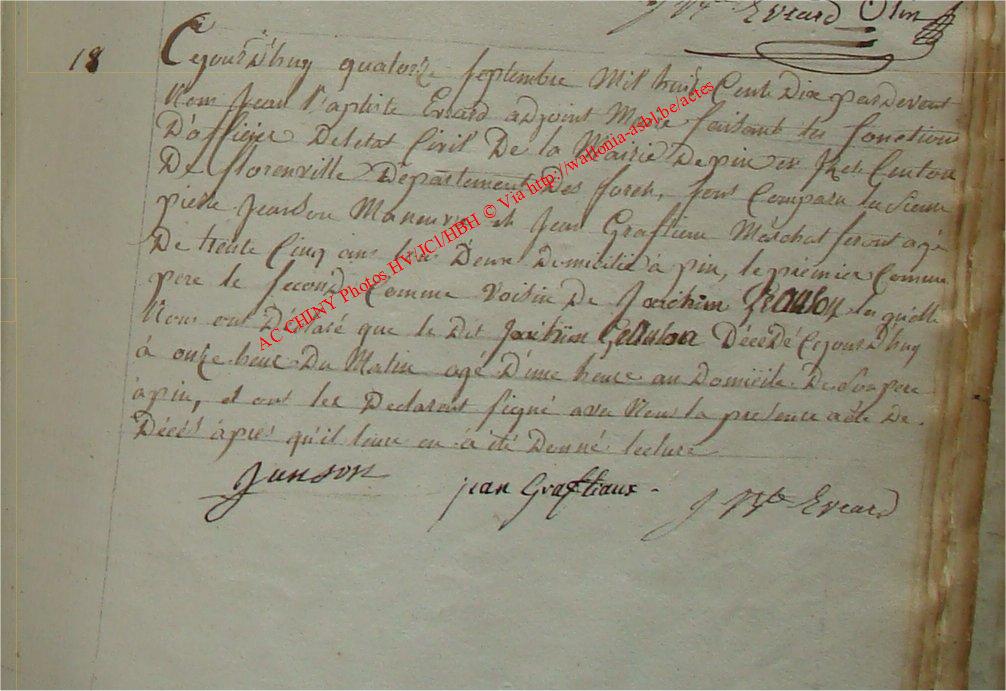 J Bte Evrard Olin
18
Cejourd'huy quatorze septembre Mil huit Cent Dix pardevent
Nous Jean Baptiste Evrard adjoint Maire faisant les fonctions
D'officier Deletat Civil De la Mairie Depin et Canton
De florenville Departement Des foret, sont Comparu les sieurs
pierre Jeanson Maneuvre et Jean Graftiaux Maréchal ferant agé
De trente Cinq ans tous Deux Domicilié à pin, le prémier Comme
pere le second Comme Voisin De Joachim les quelle
Nous ont Déclaré que le Dit Joachim Décédé Cejourd'huy
à onze heure Du Matin agé D'une heure au Domicile De Son pere
à pin, et ont les Declarent signé avec Nous la presence acte De
Décés àpres qu'il leure en à été Donné lecture
Junson jean Graftiaux J Bte Evrard
AC CHINY Photos HV-IC1/HBH © Via http://wallonia-asbl.be/actes